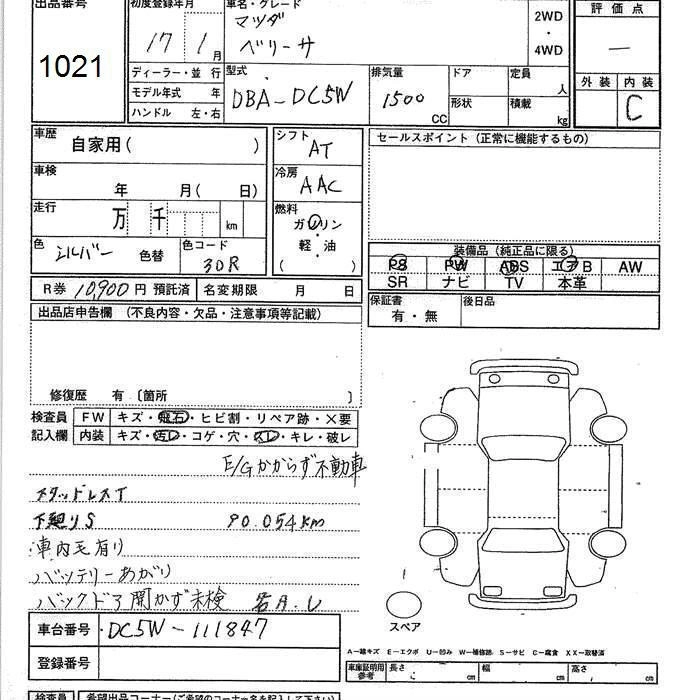 出品番号
1021
初度登録年月
17 1月
車名・グレード
マツダ
ベリーサ
2WD
・
4WD
評価点
—
外装 内装
C
ディーラー・並行
モデル年式 年
ハンドル 左・右
型式
DBA-DC5W
排気量
1500
CC
ドア
形状
定員
人
積載
kg
車歴
自家用( )
シフト
AT
車検
年 月( 日)
冷房
AAC
走行
万 千 km
燃料
ガソリン
・
軽油
( )
色
シルバー 色替
色コード
30R
R券 10,900円 預託済 名変期限 月 日
セールスポイント (正常に機能するもの)
装備品 (純正品に限る)
PS PW ABS エアB AW
SR ナビ TV 本革
保証書
有・無
後日品
出品店申告欄 (不良内容・欠品・注意事項等記載)
修復歴 有 〔箇所 〕
検査員
記入欄
FW キズ・飛石・ヒビ割・リペア跡・X要
内装 キズ・汚レ・コゲ・穴・スレ・キレ・破レ
E/Gかからず不動車
スタッドレスT
下廻りS 90.054km
車内毛有り
バッテリーあがり
バックドア開かず未検 各A.U
スペア
A-線キズ E-エクボ U-凹み W-補修跡 S-サビ C-腐食 XX-取替済
車台番号 DC5W-111847
登録番号
車庫証明用
参考
長さ cm 幅 cm 高さ cm
検査員 希望出品コーナー(ご希望のコーナー名を記入して下さい)